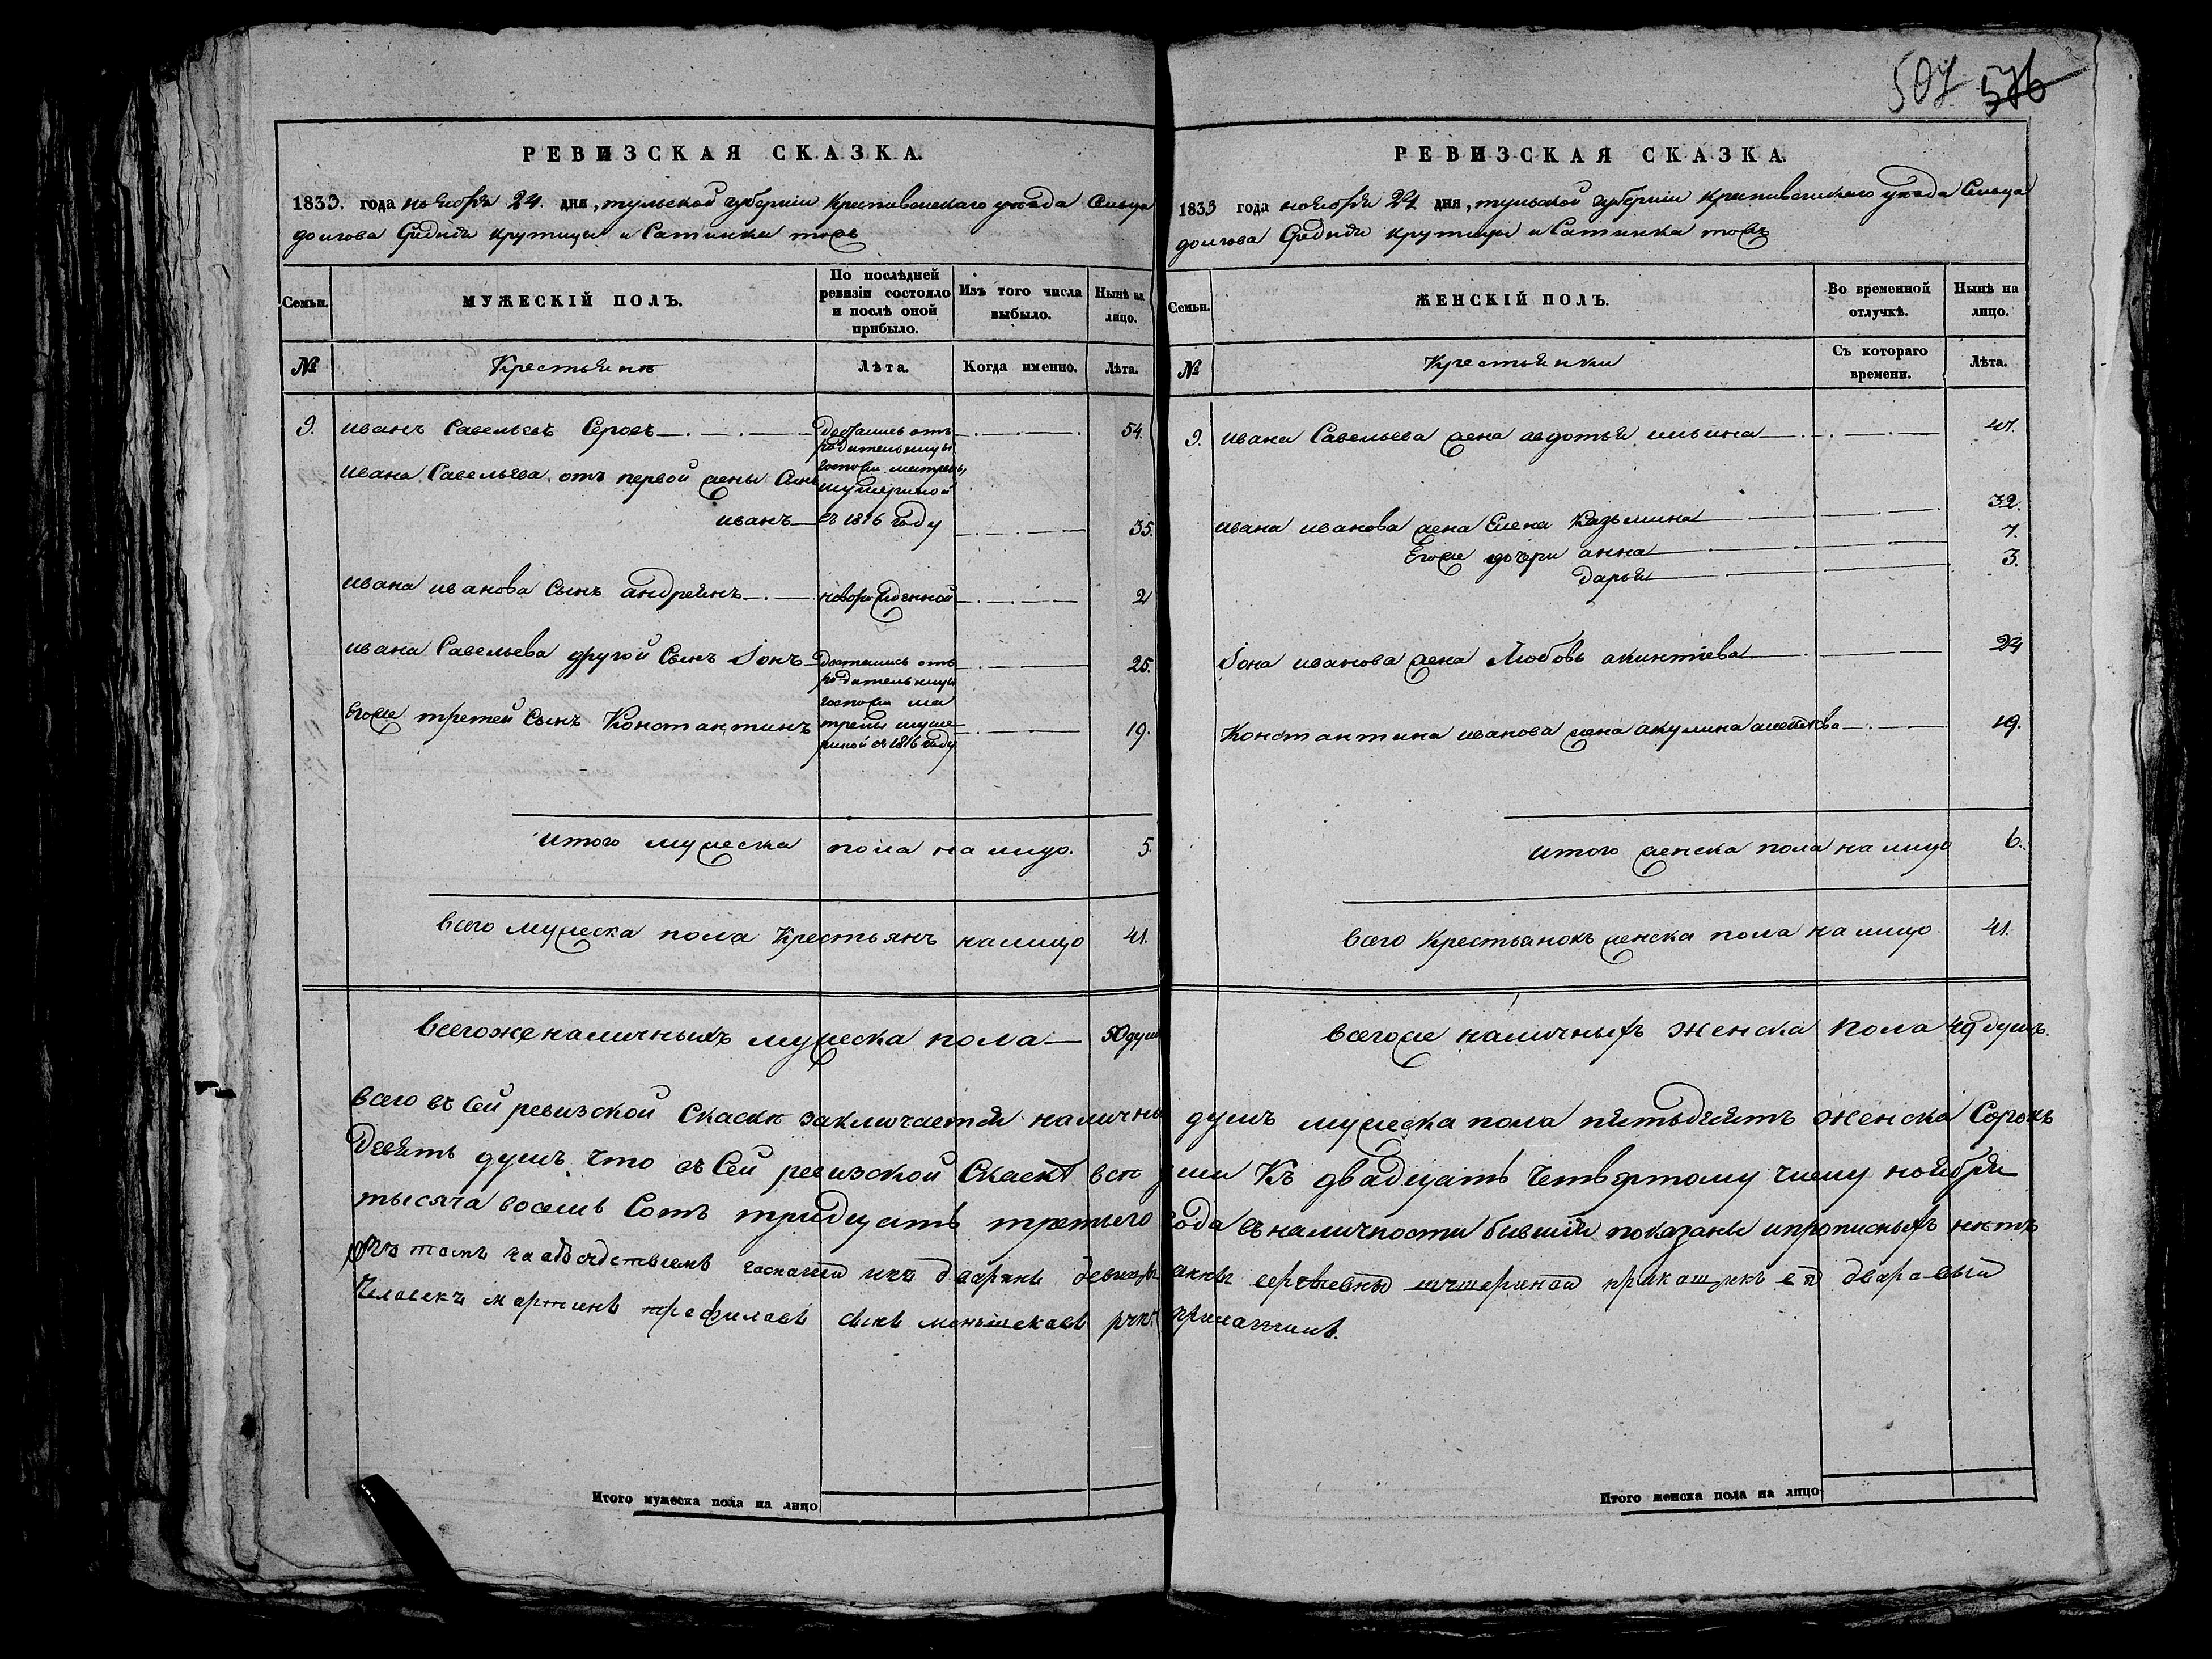 507 576
РЕВИЗСКАЯ СКАЗКА.
1833. года ноября 24. дня, тульской губернии крапивенскаго уезда Сельца
долгова Средния крутицы и Сатинка тожъ
Семьи.
МУЖЕСКІЙ ПОЛЪ.
По послѣдней
ревизіи состояло
и послѣ оной
прибыло.
Изъ того числа
выбыло.
Нынѣ на
лицо.
№
Крестьянѣ
Лѣта.
Когда именно.
Лѣта.
9. иванъ Савельевъ Серовъ 54.
Достались отъ
родительницы
госпожи матрены
шушериной
въ 1816 году
ивана Савельева отъ первой жены Сынъ
иванъ 35.
ивана иванова Сынъ андреянъ новорожденной 2
ивана Савельева другой Сынъ Іонъ 25.
Достались отъ
родительницы
госпожи ма
трены шуше
риной въ 1816 году
егоже третей Сынъ Константинъ 19.
итого мужеска пола на лицо. 5.
всего мужеска пола Крестьянъ на лицо 41.
всегоже наличныхъ мужеска пола 50 душъ
РЕВИЗСКАЯ СКАЗКА.
1833 года ноября 24 дня, тульской губернии крапивенскаго уезда Сельца
долгова Средния крутицы и Сатинка тожъ
Семьи.
ЖЕНСКІЙ ПОЛЪ.
Во временной
отлучкѣ.
Нынѣ на
лицо.
№
Крестьянки
Съ котораго
времени.
Лѣта.
9. ивана Савельева жена авдотья ильина 47.
ивана иванова жена Елена Казьмина 32.
Егоже дочери анна 7.
дарья 3.
Іона иванова жена Любовь акинтіева 24
Константина иванова жена акулина 19.
итого женска пола на лицо 6.
всего Крестьянокъ женска пола на лицо 41.
всегоже наличныхъ женска пола 49 душъ.
всего въ Сей ревизской Скаскѣ заключается наличны душъ мужеска пола пятьдесятъ женска Сорокъ
Девять душъ, что въ Сей ревизской Скаскѣ все души Къ двадцать четвертому числу ноября
тысяча восемь Сотъ тридцать третьего года въ наличности бывшия показаны и прописныхъ нѣтъ
въ томъ госпажи изъ дварянъ девицы анны шушеринай прикащикъ ея дваравый
Челавекъ мартинъ трефилавъ сынъ меньшекавъ руку